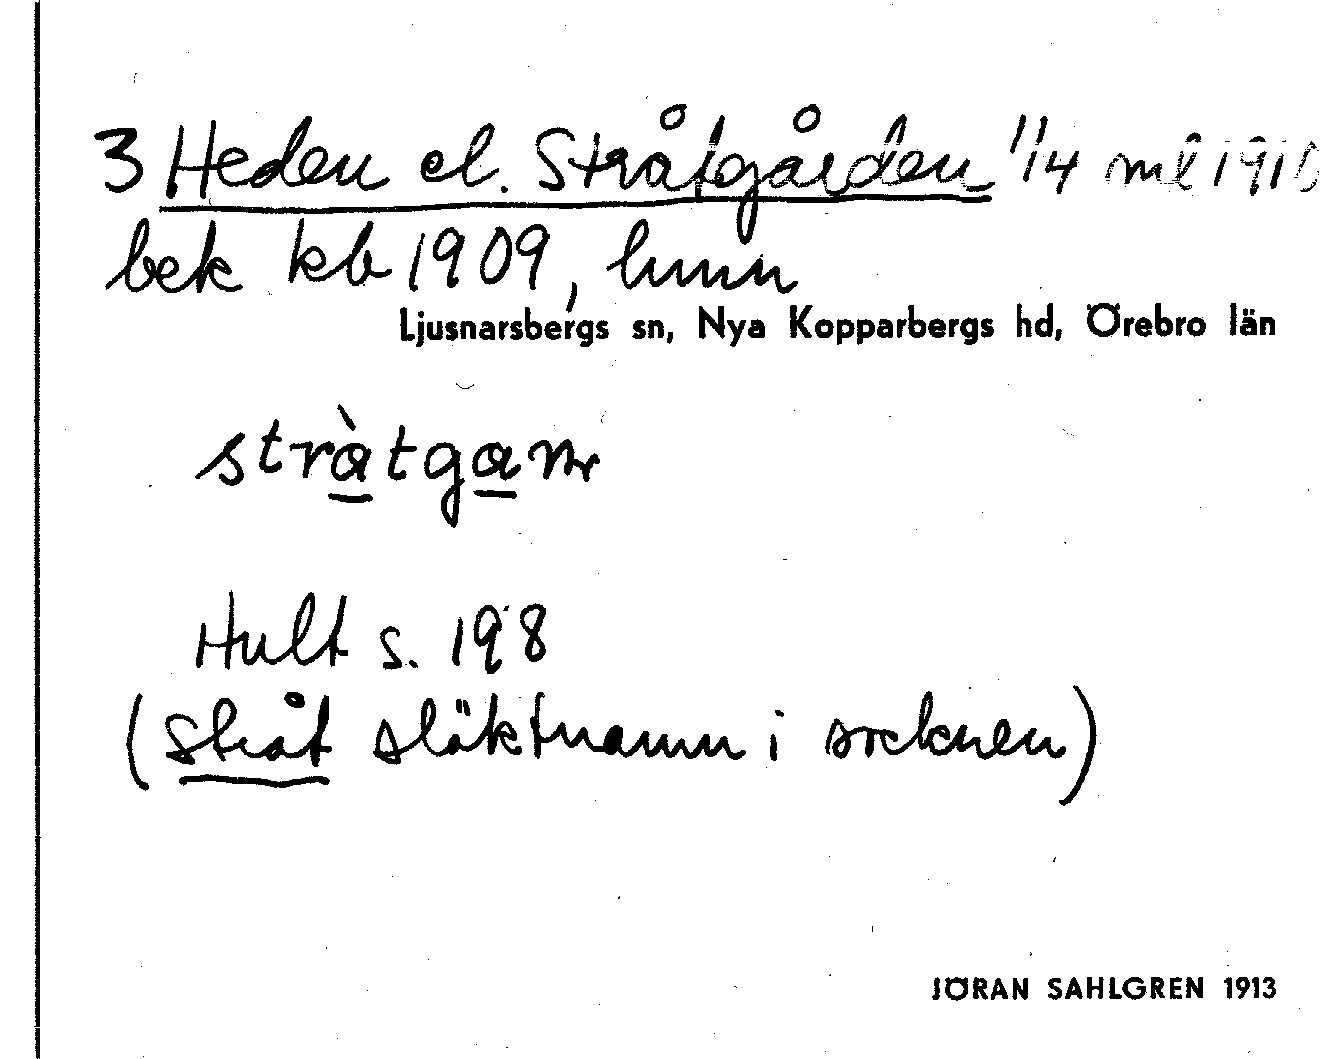 3 Heden el. Stråtgården 1/4 ml 1910
bek kb 1909, hmn
Ljusnarsbergs sn, Nya Kopparbergs hd, Örebro län
stràtgaṇr
Hult s. 198
(Stråt släktnamn i socknen)
JÖRAN SAHLGREN 1913